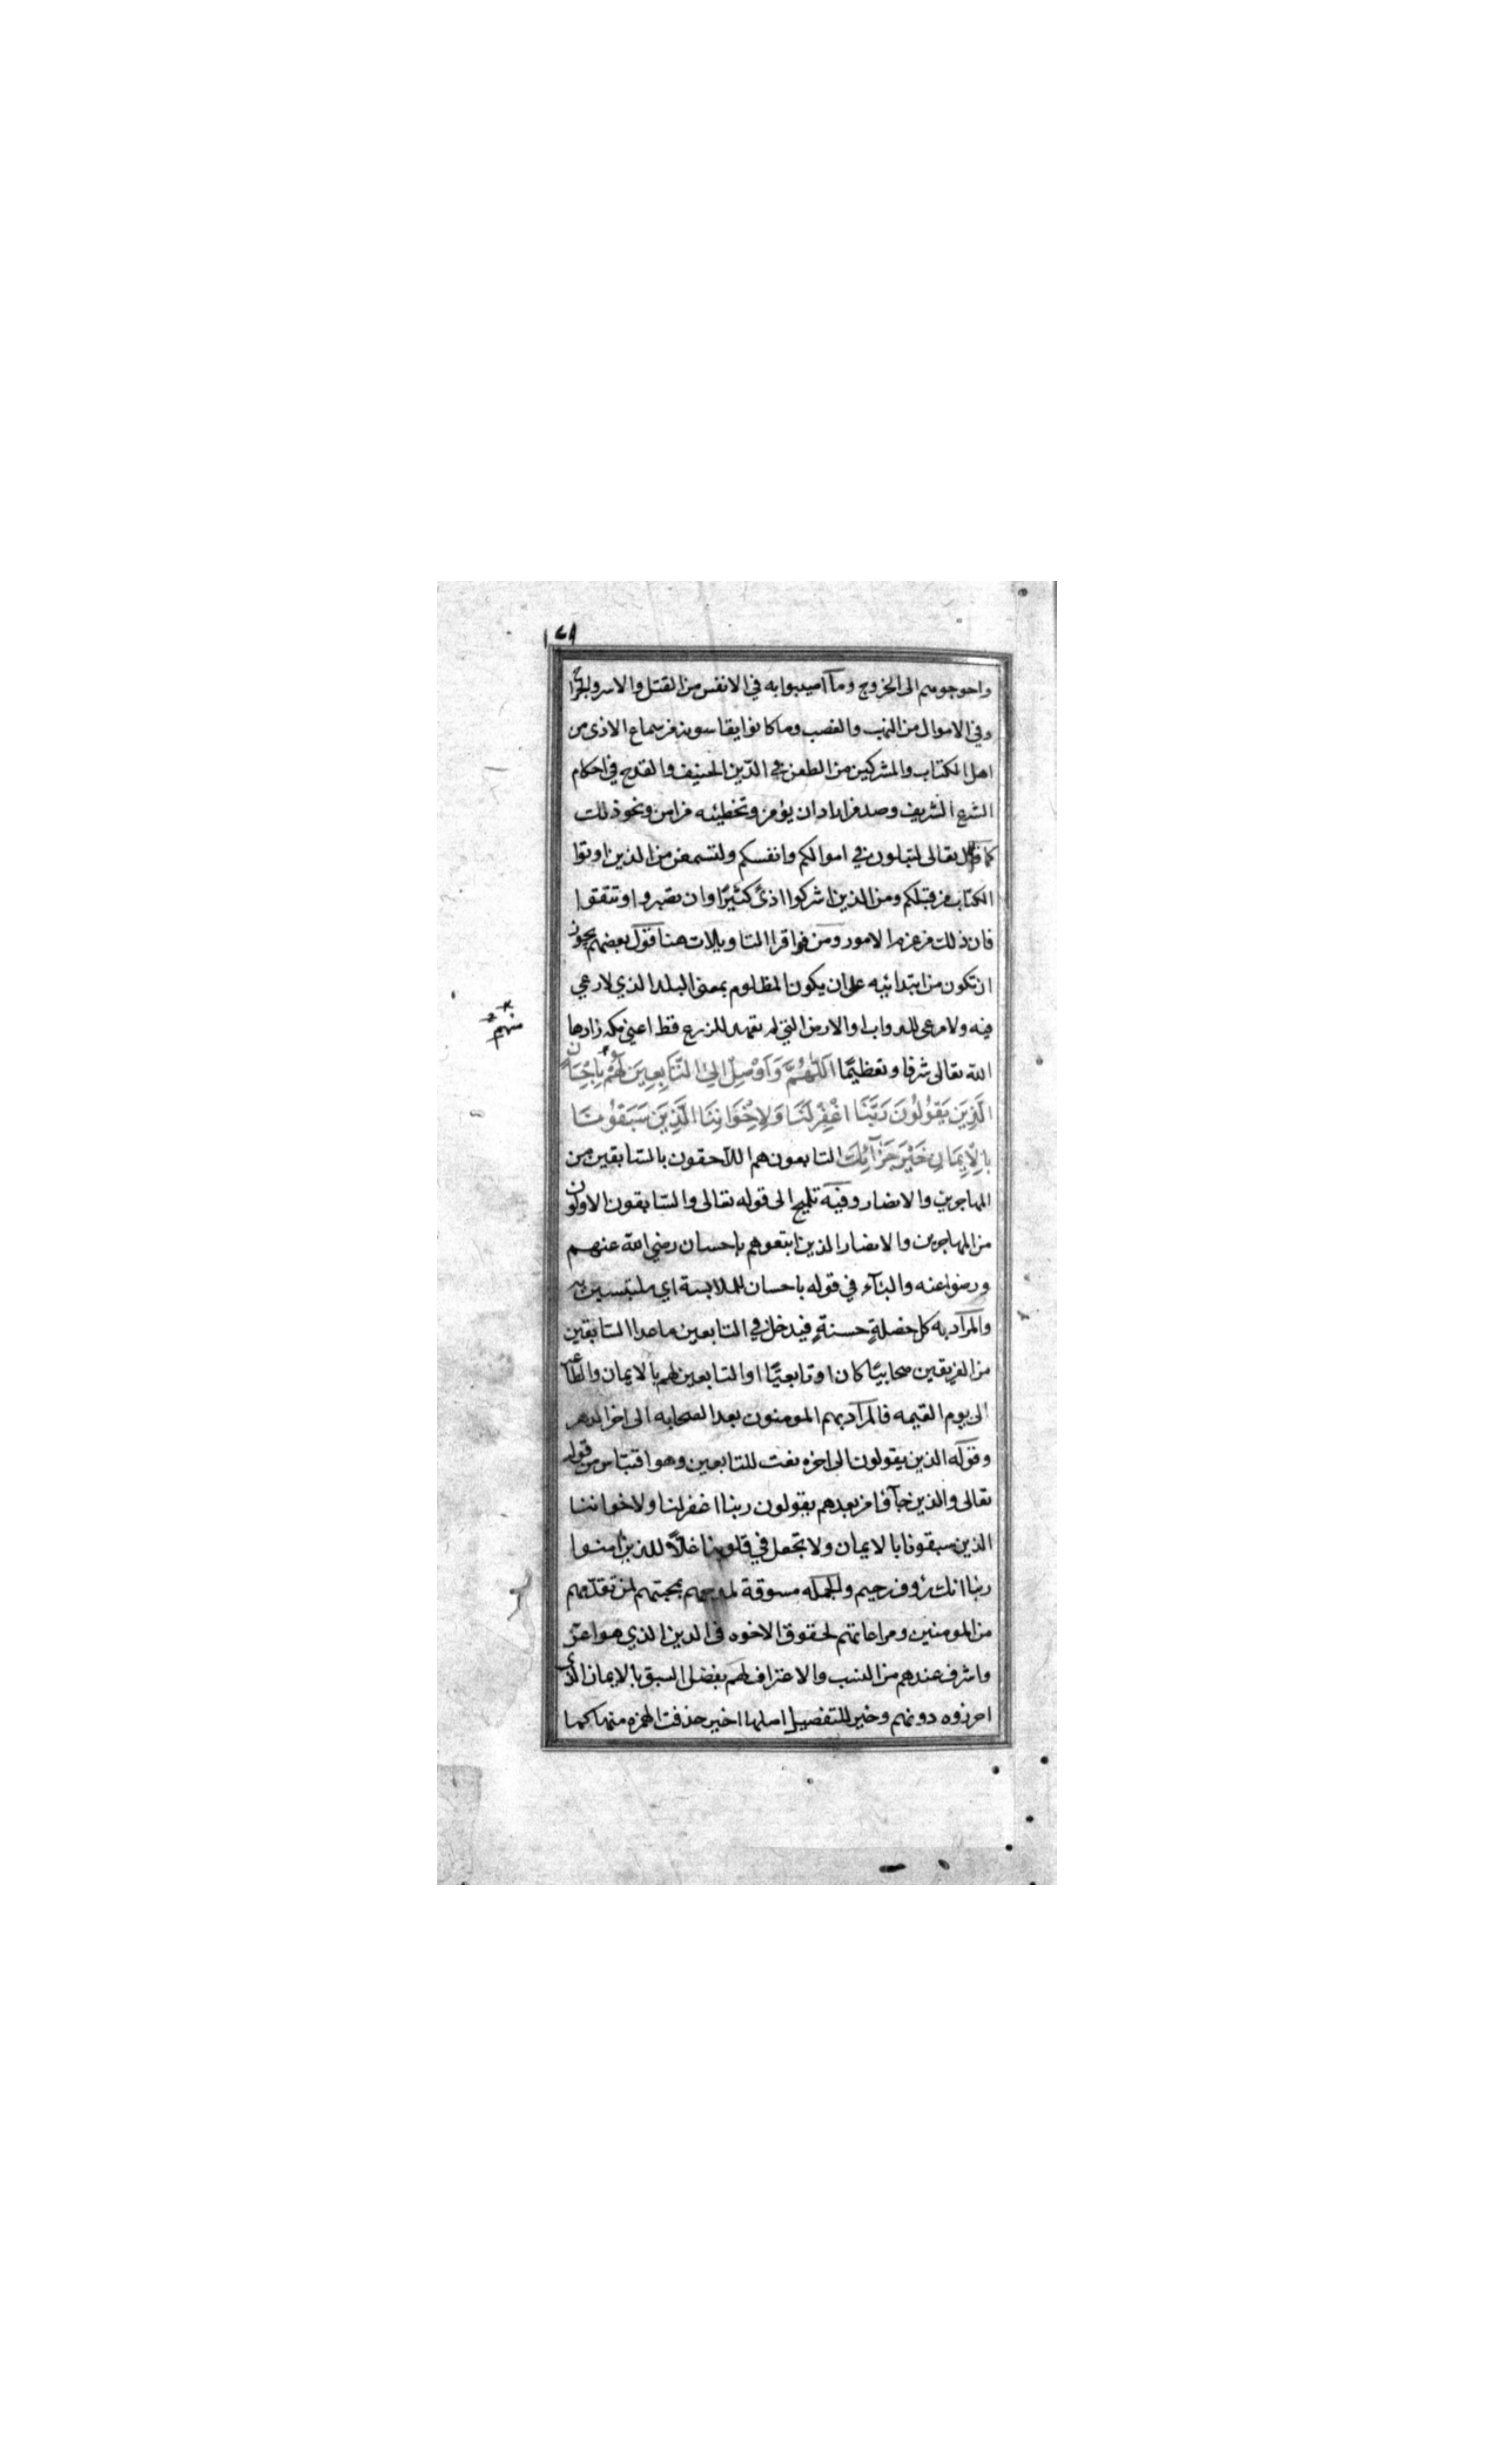 ١٤٨
واحوجوهم الى الخروج وما اصيبوا به في الانفس من القتل والاسر والجراح
وفي الاموال من النهب والغصب وما كانوا يقاسونه من سماع الاذى من
اهل الكتاب والمشركين من الطعن في الدّين الحنيف والقدح في احكام
الشرع الشريف وصد من اراد ان يؤمن وتخطئه من امن ونحو ذلك
كما قال تعالى لتبلون في اموالكم وانفسكم ولتسمعن من الذين اوتوا
الكتاب من قبلكم ومن الذين اشركوا اذىً كثيرًا وان تصبروا وتتقوا
فان ذلك من عزم الامور ومن فواقر التاويلات هنا قول بعضهم يجوز
ان تكون من ابتدائيه على ان يكون المظلوم بمعنى البلد الذي لا رعي
فيه ولا مرعى للدواب او الارض التي لم تعهد للزرع قط اعني مكه زادها
الله تعالى شرفا وتعظيمًا اَللّٰهُمَّ وَاَوْصِلْ اِلىٰ التَّابِعِينَ لَهُمْ بِاِحْسَانٍ
الَّذِينَ يَقُولُونَ رَبَّنَا اغْفِرْ لَنَا وَلِاِخْوَانِنَا الَّذِينَ سَبَقُونَا
بِالْاِيمَانِ خَيْرَ جَزَآئِكَ التابعون هم اللاحقون بالسّابقين من
المهاجرين والانصار وفيه تلميح الى قوله تعالى والسّابقون الاولون
من المهاجرين والانصار الذين اتبعوهم باحسان رضي الله عنهم
ورضوا عنه والبآء في قوله باحسان للملابسة اي ملتبسين به
والمراد به كل خصلةٍ حسنةٍ فيدخل في التابعين ما عدا السّابقين
من الفريقين صحابيًا كان او تابعيًّا او التابعين لهم بالايمان والطاعه
الى يوم القيمه فالمراد بهم المومنون بعد الصحابه الى اخر الدهر
وقوله الذين يقولون الى اخره نعت للتابعين وهو اقتباس من قوله
تعالى والذين جآؤا من بعدهم يقولون ربنا اغفر لنا ولاخواننا
الذين سبقونا بالايمان ولا تجعل في قلوبنا غلّاً للذين امنوا
ربنا انك رؤوف رحيم والجمله مسوقة لمدحهم بمحبتهم لمن تقدّمهم
من المومنين ومراعاتهم لحقوق الاخوه في الدين الذي هو اعزّ
واشرف عندهم من النسب والاعتراف لهم بفضل السبق بالايمان الذي
احرزوه دونهم وخير للتفضيل اصلها اخير حذفت الهمزه منها كما
منهم